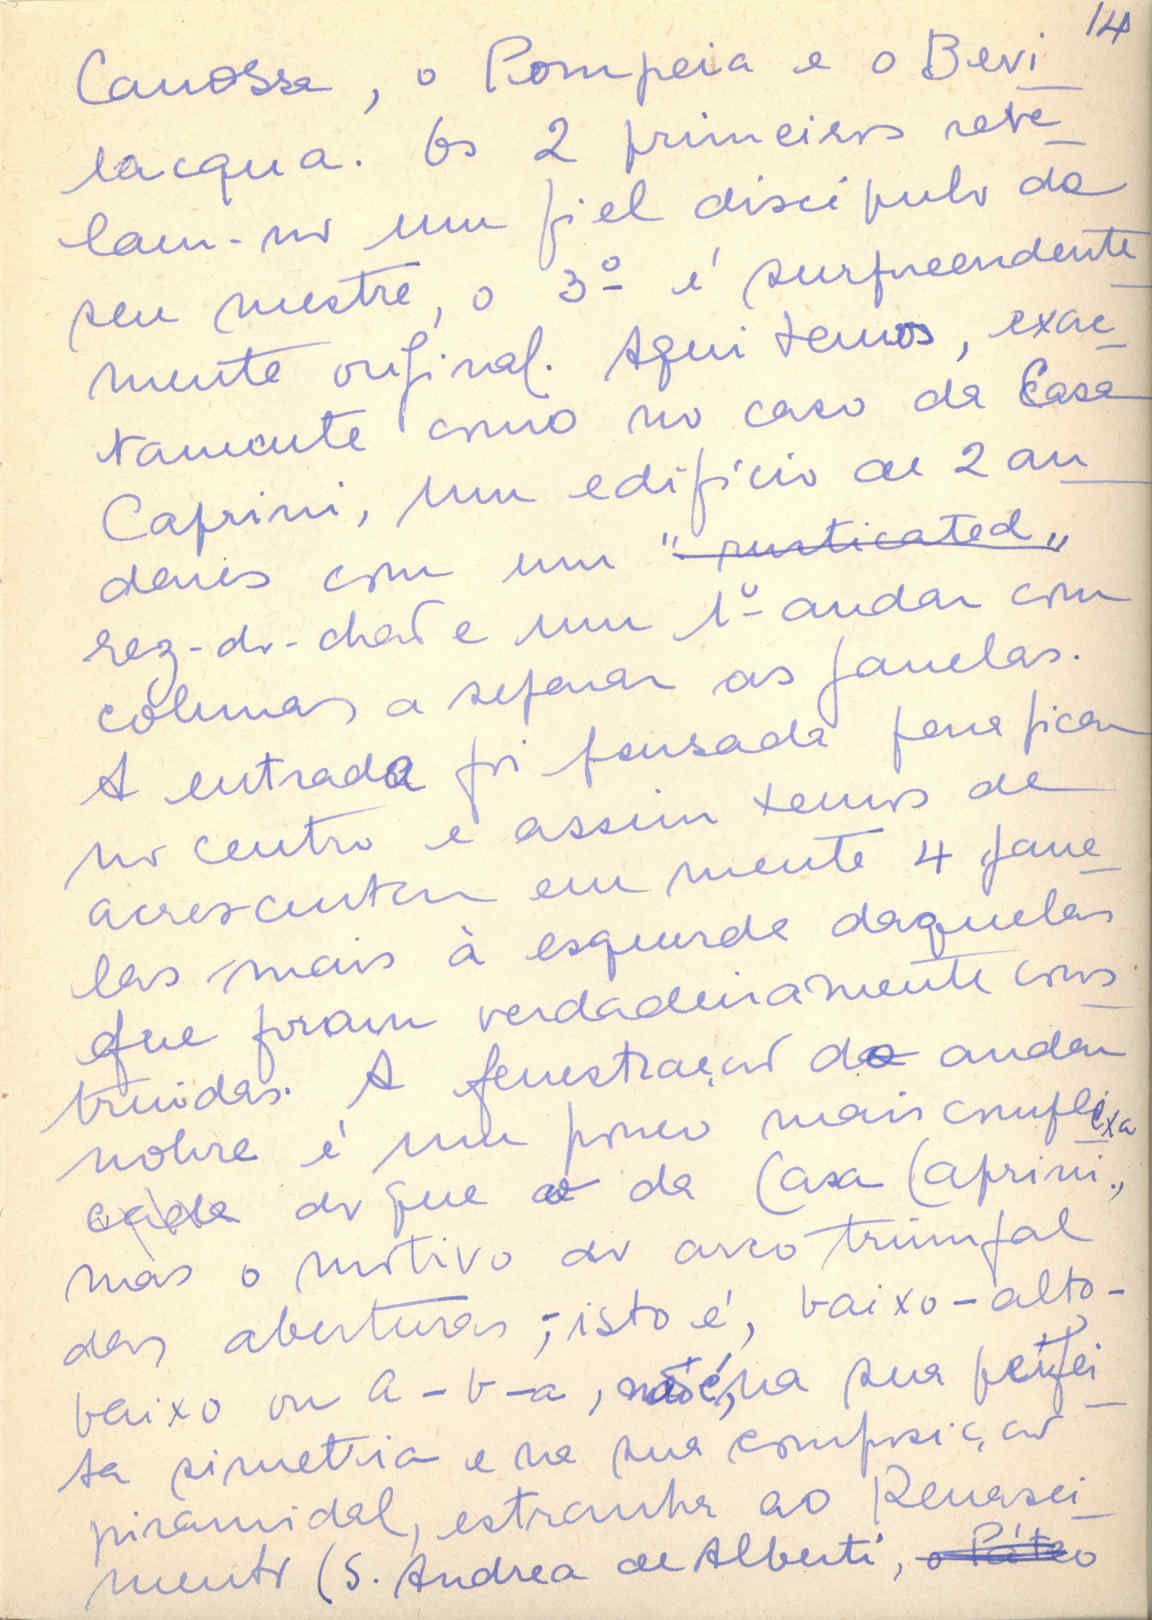 14
Canossa, o Pompeia e o Bevi
lacqua. Os 2 primeiros reve
lam-no um fiel discípulo do
seu mestre, o 3º é surpreendente
mente original. Aqui temos, exac
tamente como no caso da Casa
Caprini, um edifício de 2 an
dares com um "rusticated"
rez-do-chão e um 1º andar com
colunas a separar as janelas.
A entrada foi pensada para ficar
no centro e assim temos de
acrescentar em mente 4 jane
las mais à esquerda daquelas
que foram verdadeiramente cons
truídas. A fenestração do andar
nobre é um pouco mais complexa
cada do que a da Casa Caprini,
mas o motivo do arco triunfal
das aberturas, isto é, baixo-alto-
baixo ou a-b-a, não é, na sua perfei
ta simetria e na sua composição
piramidal, estranha ao Renasci
mento (S. Andrea de Alberti, o Páteo